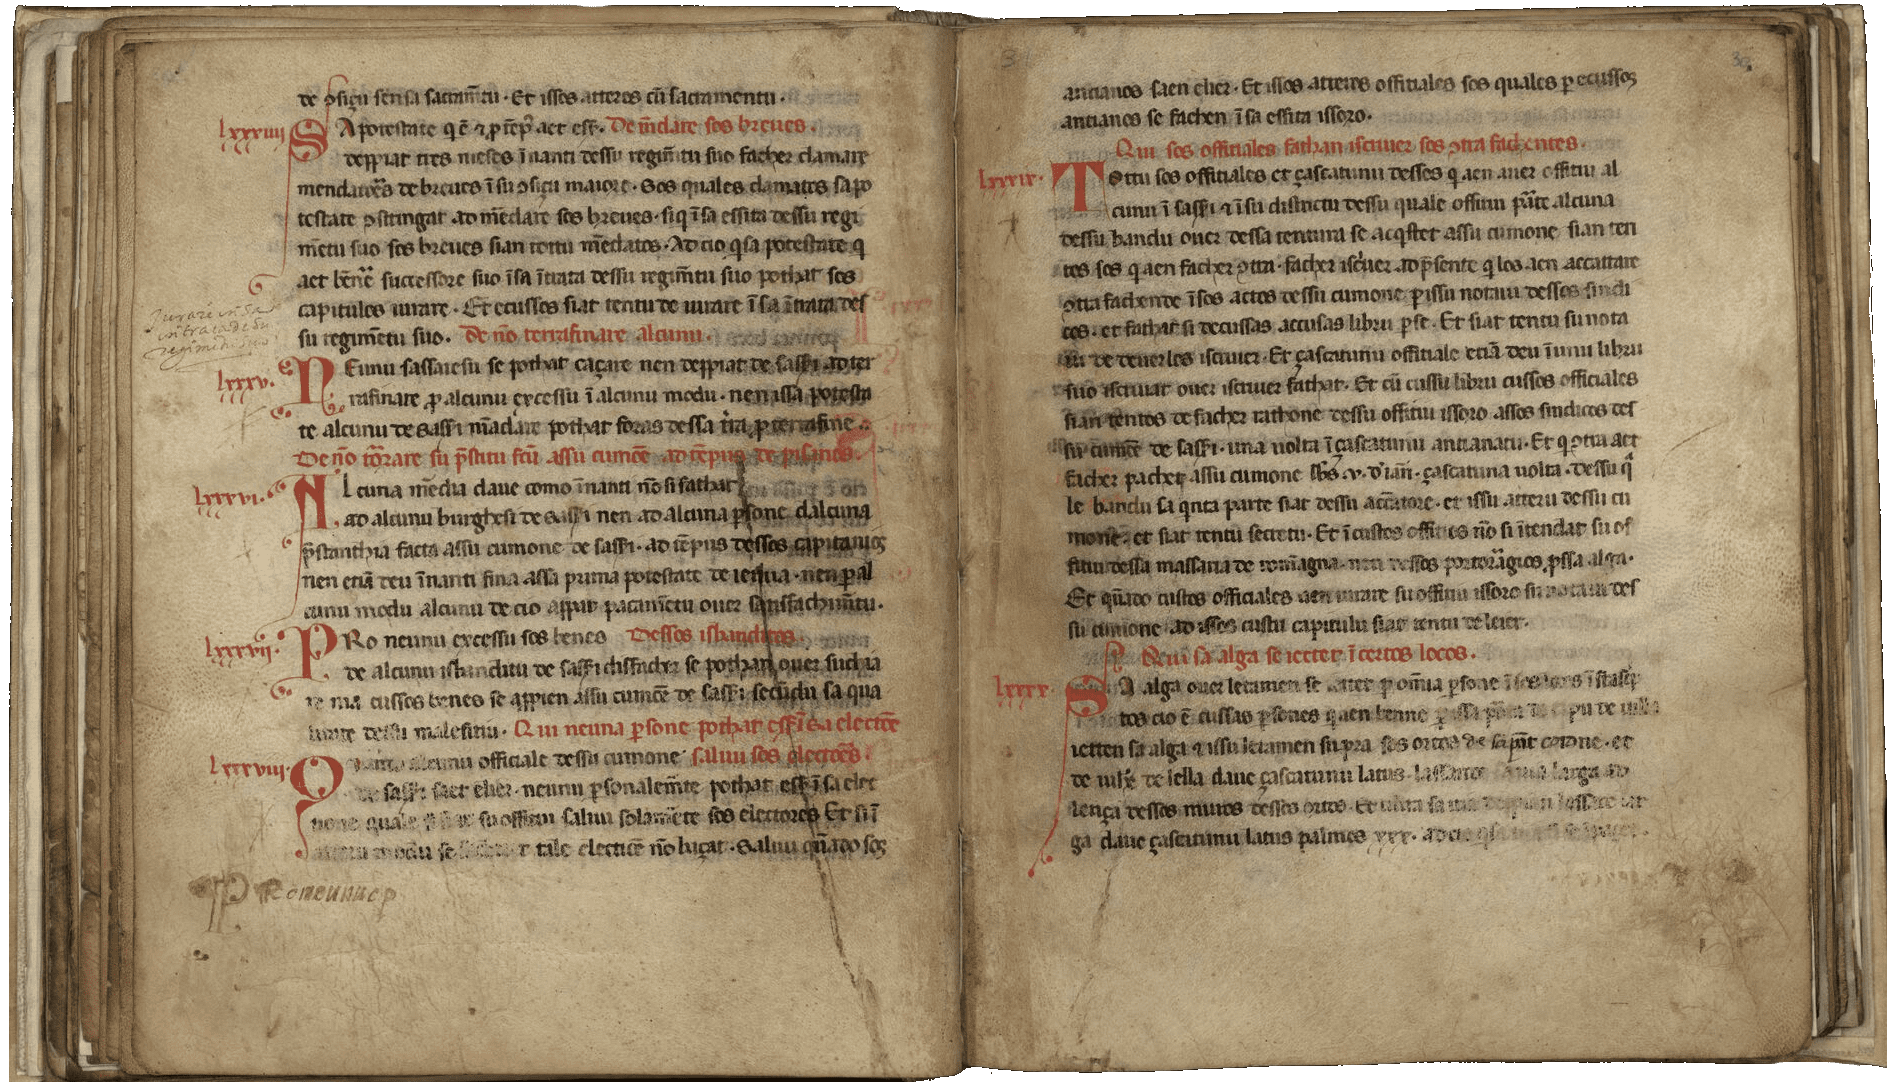 de ꝯsiçu sensa sacram̄tu · Et issos atteros cū sacramentu ·
lxxxiiii SA potestate q̄ ē ⁊ ꝑ tēp̄ aet esẜ · De m̄dare sos breues ·
deppiat tres meses īnanti dessu regim̄tu suo facher clamare
mendatores de breues ī su ꝯsiçu maiore · Sos quales clamatos sa po
testate ꝯstringat ad mēdare sos breues · si q̄ ī sa essita dessu regi
mētu suo sos breues sian tottu mēdatos · Ad cio q̄ sa potestate q̄
aet benne successore suo ī sa ītrata dessu regim̄tu suo pothat sos
capitulos iurare · Et ecussos siat tentu de iurare ī sa ītrata des
su regimētu suo · De nō terrafinare alcunu ·
Jurare in sa
intrata de su
regimentu suo
lxxxv · NEunu sassaresu se pothat caçare nen deppiat de sassari ad ter
rafinare ꝑ alcunu excessu ī alcunu modu · nen issa potesta
te alcunu de sassari mādare pothat foras dessa t̄ra ꝑ terrafine ·
De nō torrare su p̄stitu fctu assu cumone ad tēpus de pisanos ·
lxxxvi · ALcuna mēdia daue como īnanti nō si fathat
ad alcunu burghesi de sassari nen ad alcuna ꝑsone dalcuna
p̄stanthia facta assu cumone de sassari · ad tēpus dessos capitanios
nen etiā deu īnanti fina assa prima potestate de ienua · nen ꝑ al
cunu modu alcunu de cio appat pacamētu ouer satisfachim̄tu ·
lxxxvii · PRo neunu excessu sos benes Dessos isbanditos
de alcunu isbanditu de sassari disfacher se pothan ouer fuchia
re ma cussos benes se appien assu cumone de sassari secūdu sa qua
litate dessu malefitiu · Qui neuna ꝑsone pothat esẜ ī sa electiōe
lxxxviii · Quando alcunu officiale dessu cumone saluu sos electores ·
de sassari saet elier · neunu ꝑsonalemēte pothat esẜ ī sa elec
tione quale su offitiu saluu solamēte sos electores Et si ī
atteru modu se fachet tale electione nō baçat · Saluu quādo sos
Pro neunu ep
antianos saen elier · Et issos atteros offitiales sos quales ꝑ ecussos
antianos se fachen ī sa essita issoro ·
Qui sos offitiales fathan iscriuer sos ꝯtra fachentes ·
lxxxix · Tottu sos offitiales et çascatunu dessos q̄ aen auer offitiu al
cunu ī sassari ⁊ ī su districtu dessu quale offitiu parte alcuna
dessu bandu ouer dessa tentura se acq̄stet assu cumone sian ten
tos sos q̄ aen facher ꝯtra · facher iscriuer ad p̄sente q̄ los aen accattare
ꝯtra fachende ī sos actos dessu cumone ꝑ issu notaiu dessos sindi
cos · et fathat si decussas accusas libru ꝑ se · Et siat tentu su nota
iu de deuerlos iscriuer · Et çascatunu offitiale etiā deu ī unu libru
suo iscriuat ouer iscriuer fathat · Et cū cussu libru cussos officiales
sian tentos de facher rathone dessu offitiu issoro assos sindicos des
su cumone de sassari · una uolta ī çascatunu antianatu · Et q̄ ꝯtra aet
facher pachet assu cumone lib̄s · v · d ian̄ · çascatuna uolta · dessu q̄
le bandu sa quīta parte siat dessu accusatore · et issu atteru dessu cu
mone · et siat tentu secretu · Et ī custos offitios nō si ītendat su of
fitiu dessa massaria de romāgna · nen dessos portoragios ꝑ ssa alga ·
Et quādo custos officiales aen iurare su offitiu issoro su notaiu des
su cumone ad issos custu capitulu siat tentu de leier ·
Qui sa alga se iettet ī certos locos ·
lxxxx · SA alga ouer letamen se iettet ꝑ omnia ꝑsone ī sos locos ī stasq̄
tos cio ē cussas ꝑsones q̄ aen benne ꝑ issa porta de capu de uilla
ietten sa alga ⁊ issu letamen supra sos ortos de sāpāt cotone · et
de uilla de iosso daue çascatunu latus · lassande sa uia larga ad
lença dessos muros dessos ortos · Et ultra sa uia deppian lassare lar
ga daue çascatunu latus palmos xxx · ad cio q̄